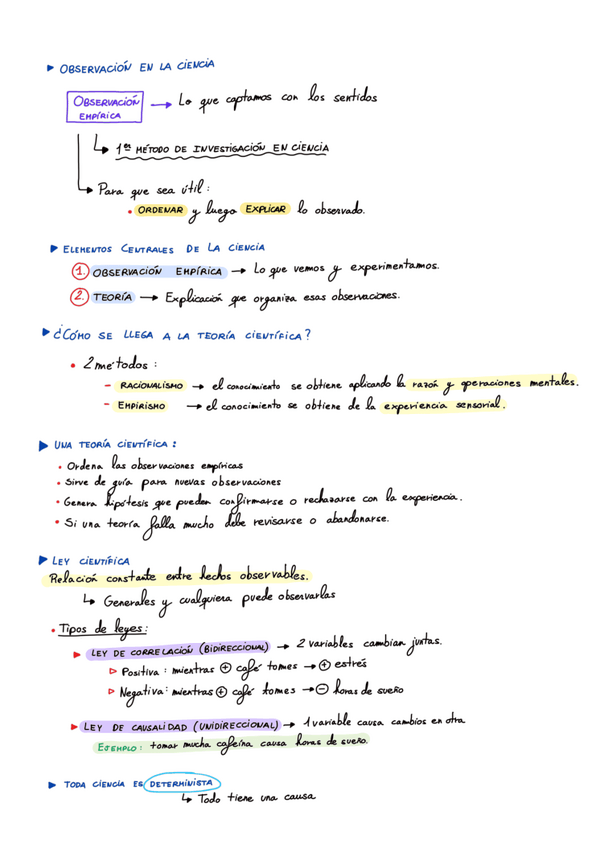 ▶ OBSERVACIÓN EN LA CIENCIA
OBSERVACIÓN EMPÍRICA → Lo que captamos con los sentidos
↳ 1er MÉTODO DE INVESTIGACIÓN EN CIENCIA
↳ Para que sea útil:
• ORDENAR y luego EXPLICAR lo observado.
▶ ELEMENTOS CENTRALES DE LA CIENCIA
1. OBSERVACIÓN EMPÍRICA → Lo que vemos y experimentamos.
2. TEORÍA → Explicación que organiza esas observaciones.
▶ ¿CÓMO SE LLEGA A LA TEORÍA CIENTÍFICA?
• 2 métodos:
– RACIONALISMO → el conocimiento se obtiene aplicando la razón y operaciones mentales.
– EMPIRISMO → el conocimiento se obtiene de la experiencia sensorial.
▶ UNA TEORÍA CIENTÍFICA:
• Ordena las observaciones empíricas
• Sirve de guía para nuevas observaciones
• Genera hipótesis que pueden confirmarse o rechazarse con la experiencia.
• Si una teoría falla mucho debe revisarse o abandonarse.
▶ LEY CIENTÍFICA
Relación constante entre hechos observables.
↳ Generales y cualquiera puede observarlas
• Tipos de leyes:
▶ LEY DE CORRELACIÓN (BIDIRECCIONAL) → 2 variables cambian juntas.
▷ Positiva: mientras ⊕ café tomes → ⊕ estrés
▷ Negativa: mientras ⊕ café tomes → ⊖ horas de sueño
▶ LEY DE CAUSALIDAD (UNIDIRECCIONAL) → 1 variable causa cambios en otra
EJEMPLO: tomar mucha cafeína causa horas de sueño.
▶ TODA CIENCIA ES DETERMINISTA
↳ Todo tiene una causa